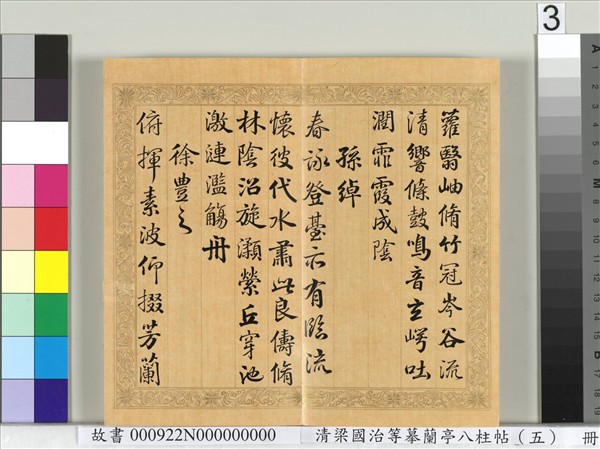 3
蘿翳岫脩竹冠岑谷流
清響條鼓鳴音玄崿吐
潤霏霞成陰
孫綽
春詠登臺亦有臨流
懷彼代水肅此良儔脩
林陰沼旋瀨縈丘穿池
激漣濫觴舟
徐豐之
俯揮素波仰掇芳蘭
故書 000922N000000000 清梁國治等摹蘭亭八柱帖（五） 冊